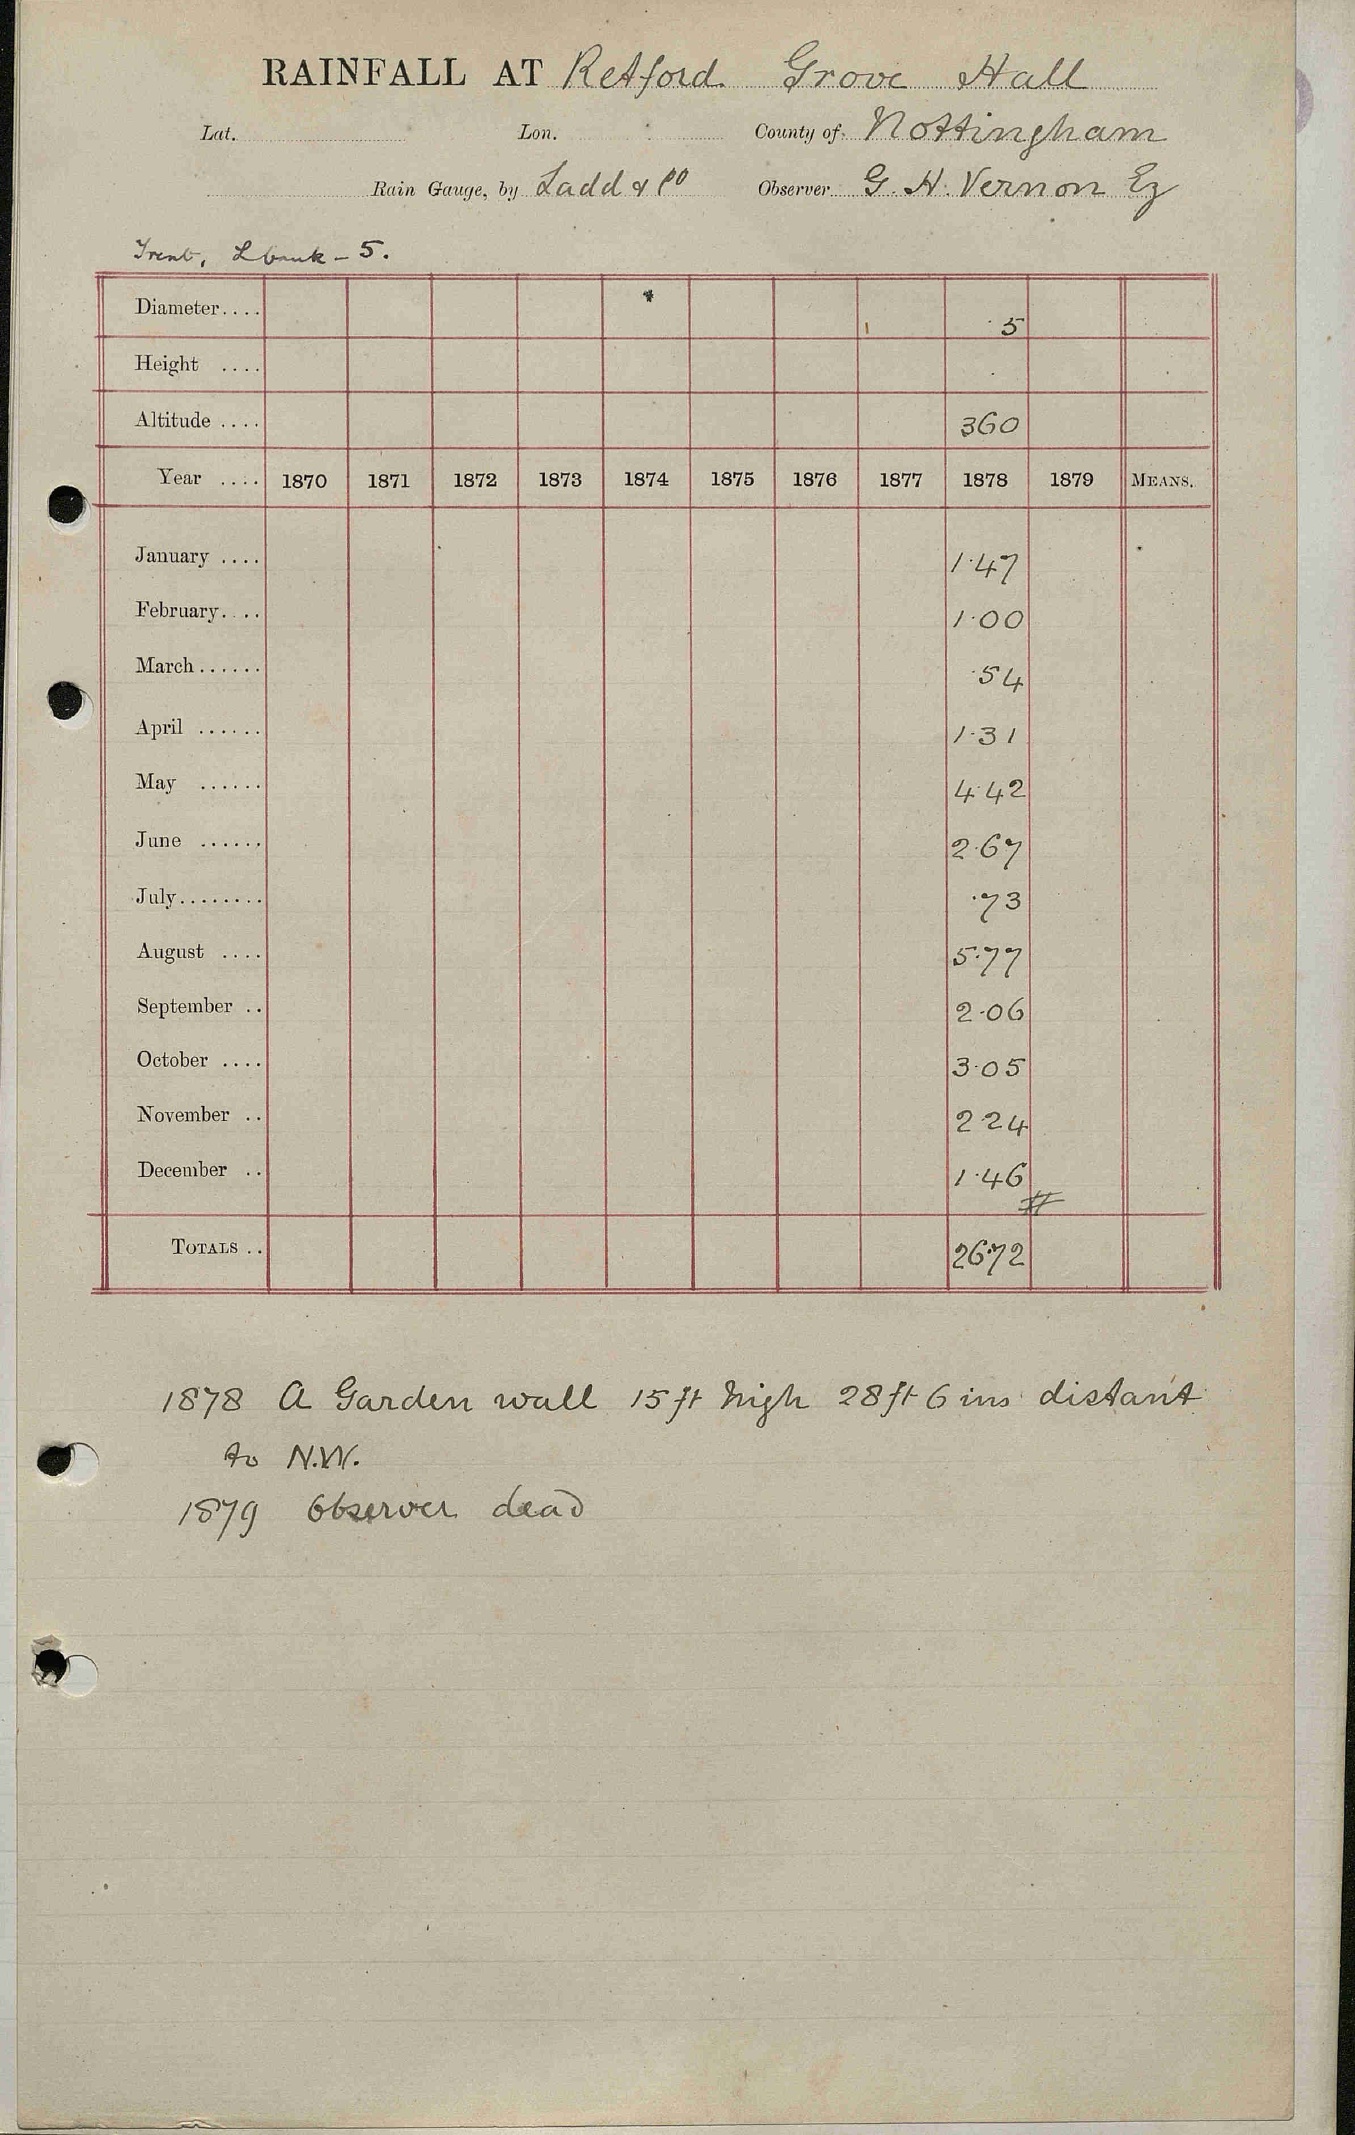 RAINFALL AT Retford Grove Hall
Lat. Lon. County of Nottingham
Rain Gauge, by Ladd & Co Observer G. H. Vernon Eq
Trent, L bank - 5.
Diameter.... 5
Height ....
Altitude .... 360
Year .... 1870 1871 1872 1873 1874 1875 1876 1877 1878 1879 MEANS.
January .... 1.47
February.... 1.00
March...... .54
April ...... 1.31
May ...... 4.42
June ...... 2.67
July........ .73
August .... 5.77
September .. 2.06
October .... 3.05
November .. 2.24
December .. 1.46
#
TOTALS .. 26.72
1878 A Garden wall 15 ft high 28 ft 6 ins distant
to N.W.
1879 Observer dead